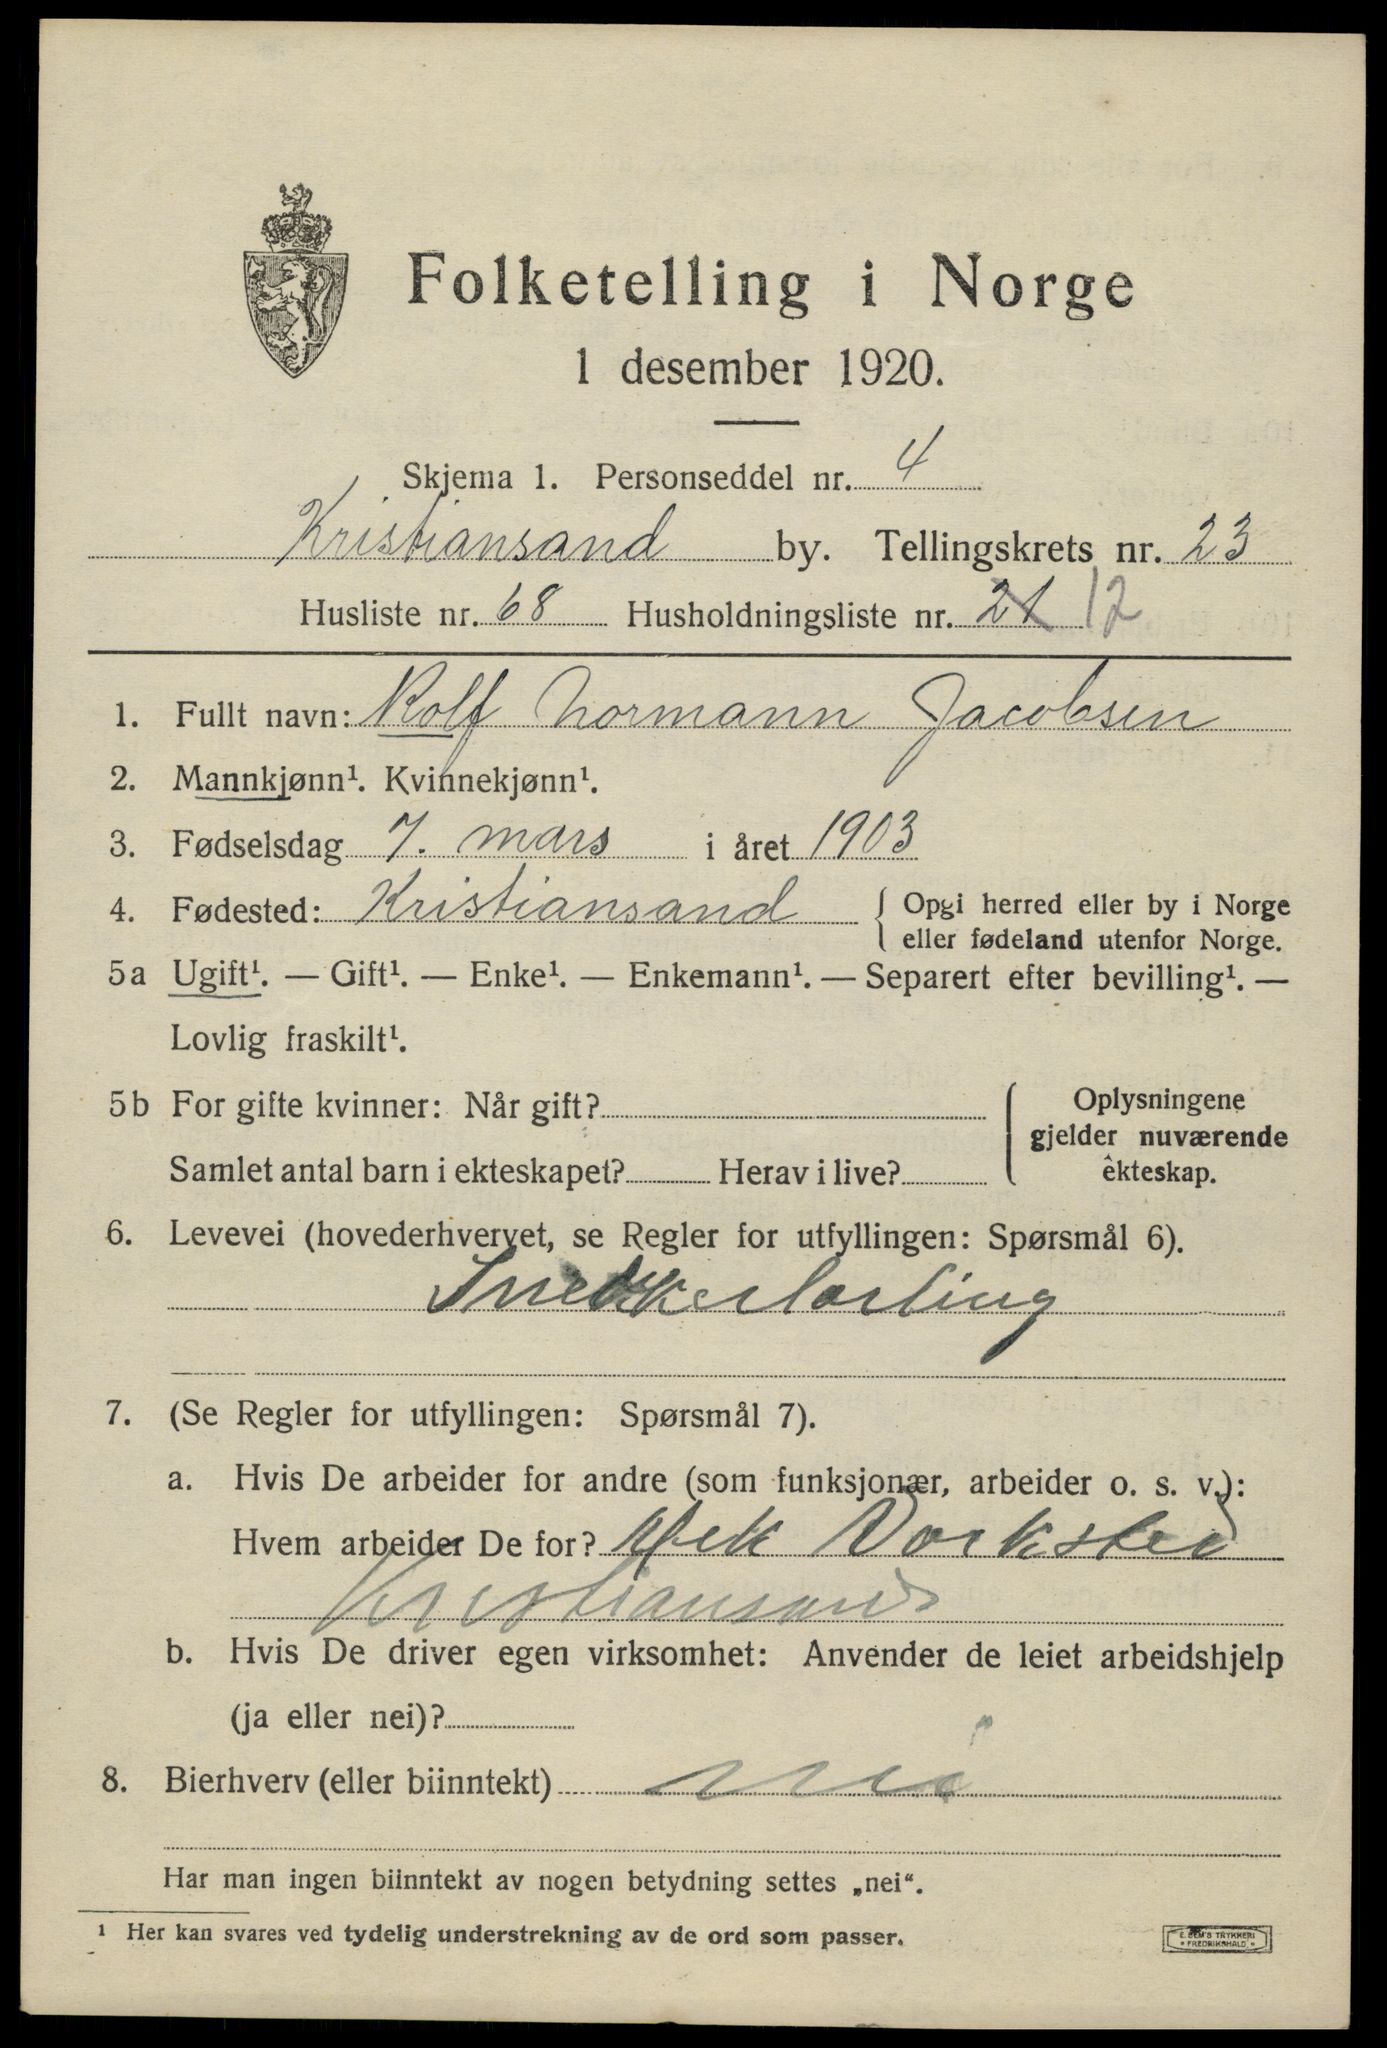 Folketelling i Norge
1 desember 1920.
Skjema 1. Personseddel nr. 4
Kristiansand by. Tellingskrets nr. 23
Husliste nr. 68 Husholdningsliste nr. 21 12
1. Fullt navn: Rolf Normann Jacobsen
2. Mannkjønn¹. Kvinnekjønn¹.
3. Fødselsdag 7. mars i året 1903
4. Fødested: Kristiansand { Opgi herred eller by i Norge
eller fødeland utenfor Norge.
5a Ugift¹. — Gift¹. — Enke¹. — Enkemann¹. — Separert efter bevilling¹. —
Lovlig fraskilt¹.
5b For gifte kvinner: Når gift?
Samlet antal barn i ekteskapet? Herav i live?
Oplysningene
gjelder nuværende
ekteskap.
6. Levevei (hovederhvervet, se Regler for utfyllingen: Spørsmål 6).
Snekkerlærling
7. (Se Regler for utfyllingen: Spørsmål 7).
a. Hvis De arbeider for andre (som funksjonær, arbeider o. s. v.):
Hvem arbeider De for? Mek Værksted
Kristiansand
b. Hvis De driver egen virksomhet: Anvender de leiet arbeidshjelp
(ja eller nei)?
8. Bierhverv (eller biinntekt) nei
Har man ingen biinntekt av nogen betydning settes „nei“.
¹ Her kan svares ved tydelig understrekning av de ord som passer.
E. SEM'S TRYKKERI
• FREDRIKSHALD •